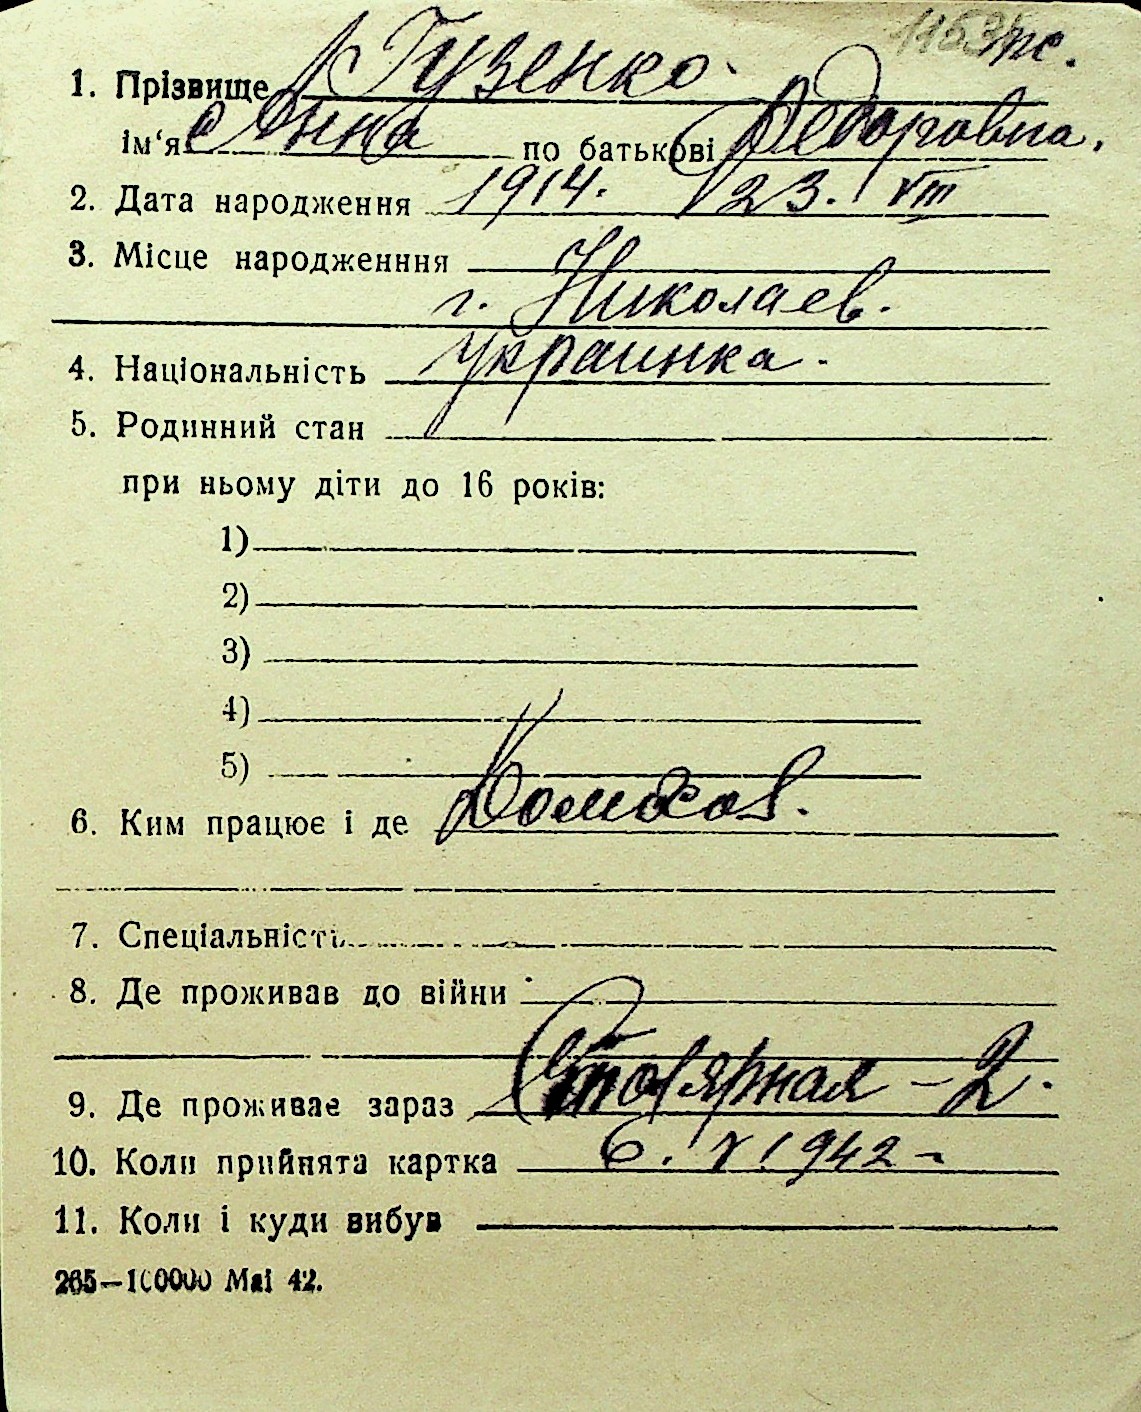 1153 пс.
1. Прізвище Гузенко.
ім‘я Анна по батькові Федоровна.
2. Дата народження 1914. 23. VIII
3. Місце народженння
г. Николаев.
4. Національність украинка.
5. Родинний стан
при ньому діти до 16 років:
1)
2)
3)
4)
5)
6. Ким працює і де Домохоз.
7. Спеціальність
8. Де проживав до війни
9. Де проживає зараз Столярная – 2.
10. Коли прийнята картка 6. V 1942 –
11. Коли і куди вибув
265—100000 Маі 42.